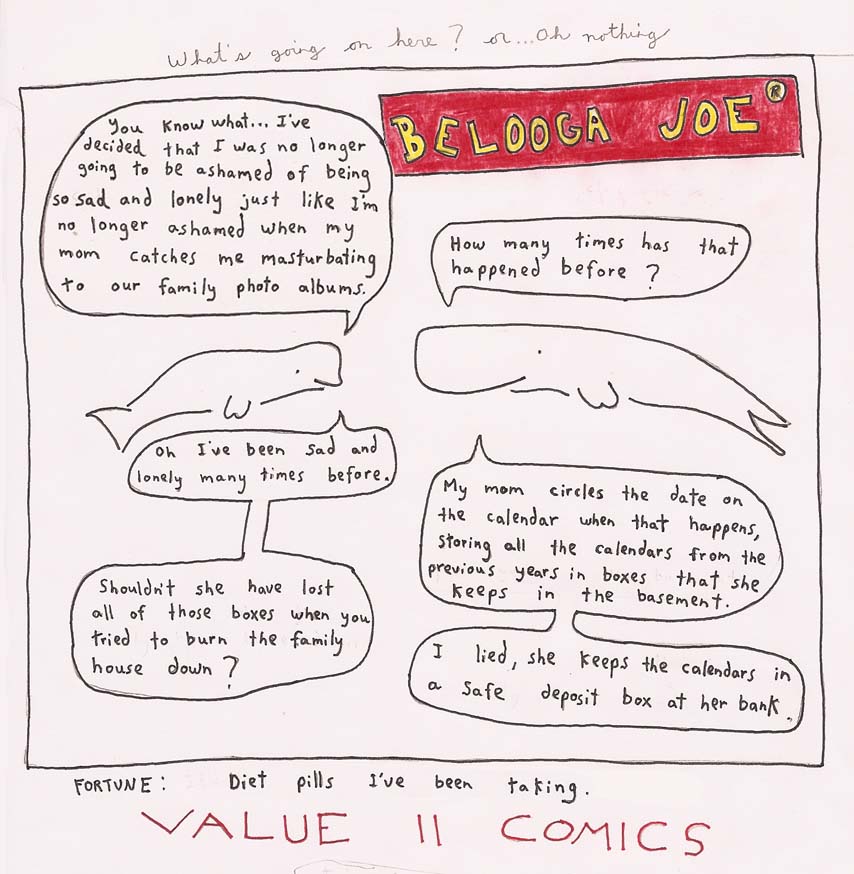 What's going on here? or...Oh nothing
BELOOGA JOE®
You know what... I've
decided that I was no longer
going to be ashamed of being
so sad and lonely just like I'm
no longer ashamed when my
mom catches me masturbating
to our family photo albums.
How many times has that
happened before?
Oh I've been sad and
lonely many times before.
My mom circles the date on
the calendar when that happens,
storing all the calendars from the
previous years in boxes that she
keeps in the basement.
Shouldn't she have lost
all of those boxes when you
tried to burn the family
house down?
I lied, she keeps the calendars in
a safe deposit box at her bank.
FORTUNE: Diet pills I've been taking.
VALUE II COMICS